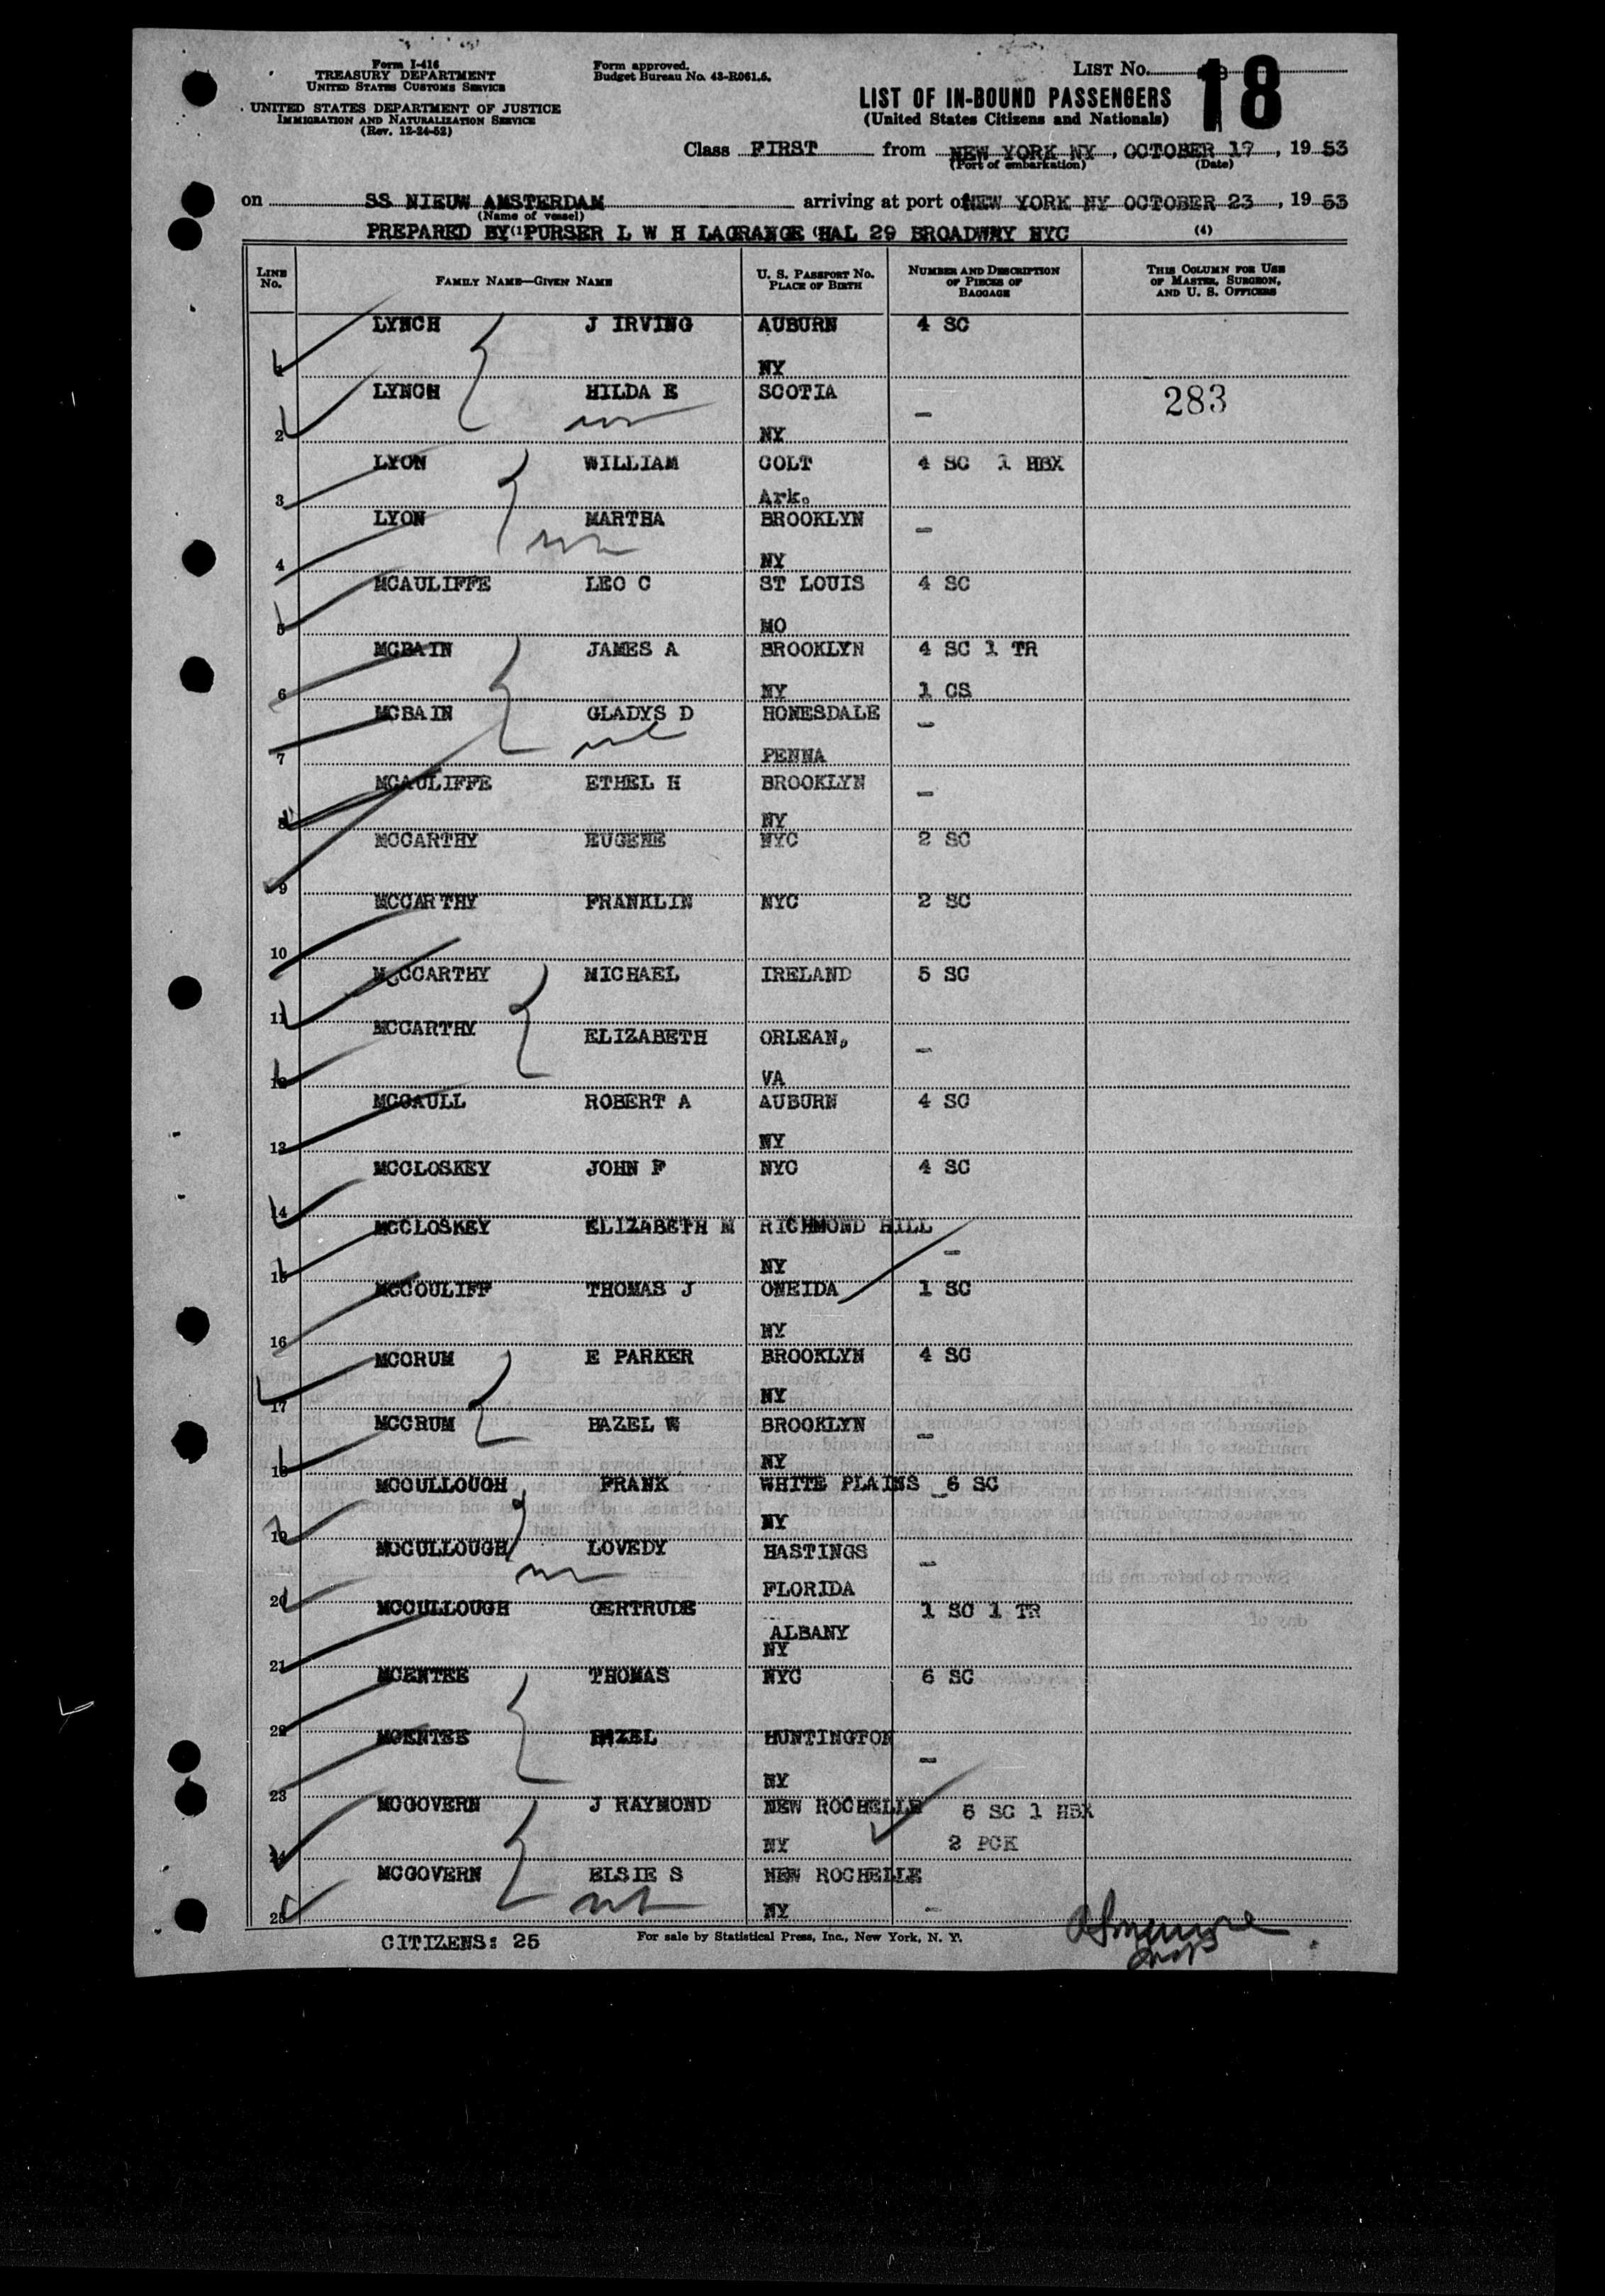 Form I-416
TREASURY DEPARTMENT
UNITED STATES CUSTOMS SERVICE
UNITED STATES DEPARTMENT OF JUSTICE
IMMIGRATION AND NATURALIZATION SERVICE
(Rev. 12-24-52)
Form approved.
Budget Bureau No. 43-R061.5.
LIST NO. 18
LIST OF IN-BOUND PASSENGERS
(United States Citizens and Nationals)
Class FIRST from NEW YORK NY, OCTOBER 17, 19 53
(Port of embarkation) (Date)
on SS NIEUW AMSTERDAM arriving at port of NEW YORK NY OCTOBER 23, 19 53
(Name of vessel)
PREPARED BY PURSER L W H LAGRANGE HAL 29 BROADWAY NYC (4)
LINE No. FAMILY NAME—GIVEN NAME U. S. PASSPORT NO. PLACE OF BIRTH NUMBER AND DESCRIPTION OF PIECES OF BAGGAGE THIS COLUMN FOR USE OF MASTER, SURGEON, AND U. S. OFFICERS
LYNCH J IRVING AUBURN 4 SC
1 NY
LYNCH HILDA E SCOTIA – 283
2 NY
LYON WILLIAM COLT 4 SC 1 HBX
3 Ark.
LYON MARTHA BROOKLYN –
4 NY
MCAULIFFE LEO C ST LOUIS 4 SC
5 MO
MCBAIN JAMES A BROOKLYN 4 SC 1 TR
6 NY 1 CS
MCBAIN GLADYS D HONESDALE –
7 PENNA
MCAULIFFE ETHEL H BROOKLYN –
8 NY
MCCARTHY EUGENE NYC 2 SC
9
MCCARTHY FRANKLIN NYC 2 SC
10
MCCARTHY MICHAEL IRELAND 5 SC
11
MCCARTHY ELIZABETH ORLEAN, –
12 VA
MCCAULL ROBERT A AUBURN 4 SC
13 NY
MCCLOSKEY JOHN F NYC 4 SC
14
MCCLOSKEY ELIZABETH M RICHMOND HILL –
15 NY
MCCOULIFF THOMAS J ONEIDA 1 SC
16 NY
MCCRUM E PARKER BROOKLYN 4 SC
17 NY
MCCRUM HAZEL W BROOKLYN –
18 NY
MCCULLOUGH FRANK WHITE PLAINS 6 SC
19 NY
MCCULLOUGH LOVEDY HASTINGS –
20 FLORIDA
MCCULLOUGH GERTRUDE 1 SC 1 TR
ALBANY
21 NY
MCENTEE THOMAS NYC 6 SC
22
MCENTEE HAZEL HUNTINGTON –
23 NY
MCGOVERN J RAYMOND NEW ROCHELLE 6 SC 1 HBX
24 NY 2 PCK
MCGOVERN ELSIE S NEW ROCHELLE
25 NY –
CITIZENS: 25 For sale by Statistical Press, Inc., New York, N. Y.